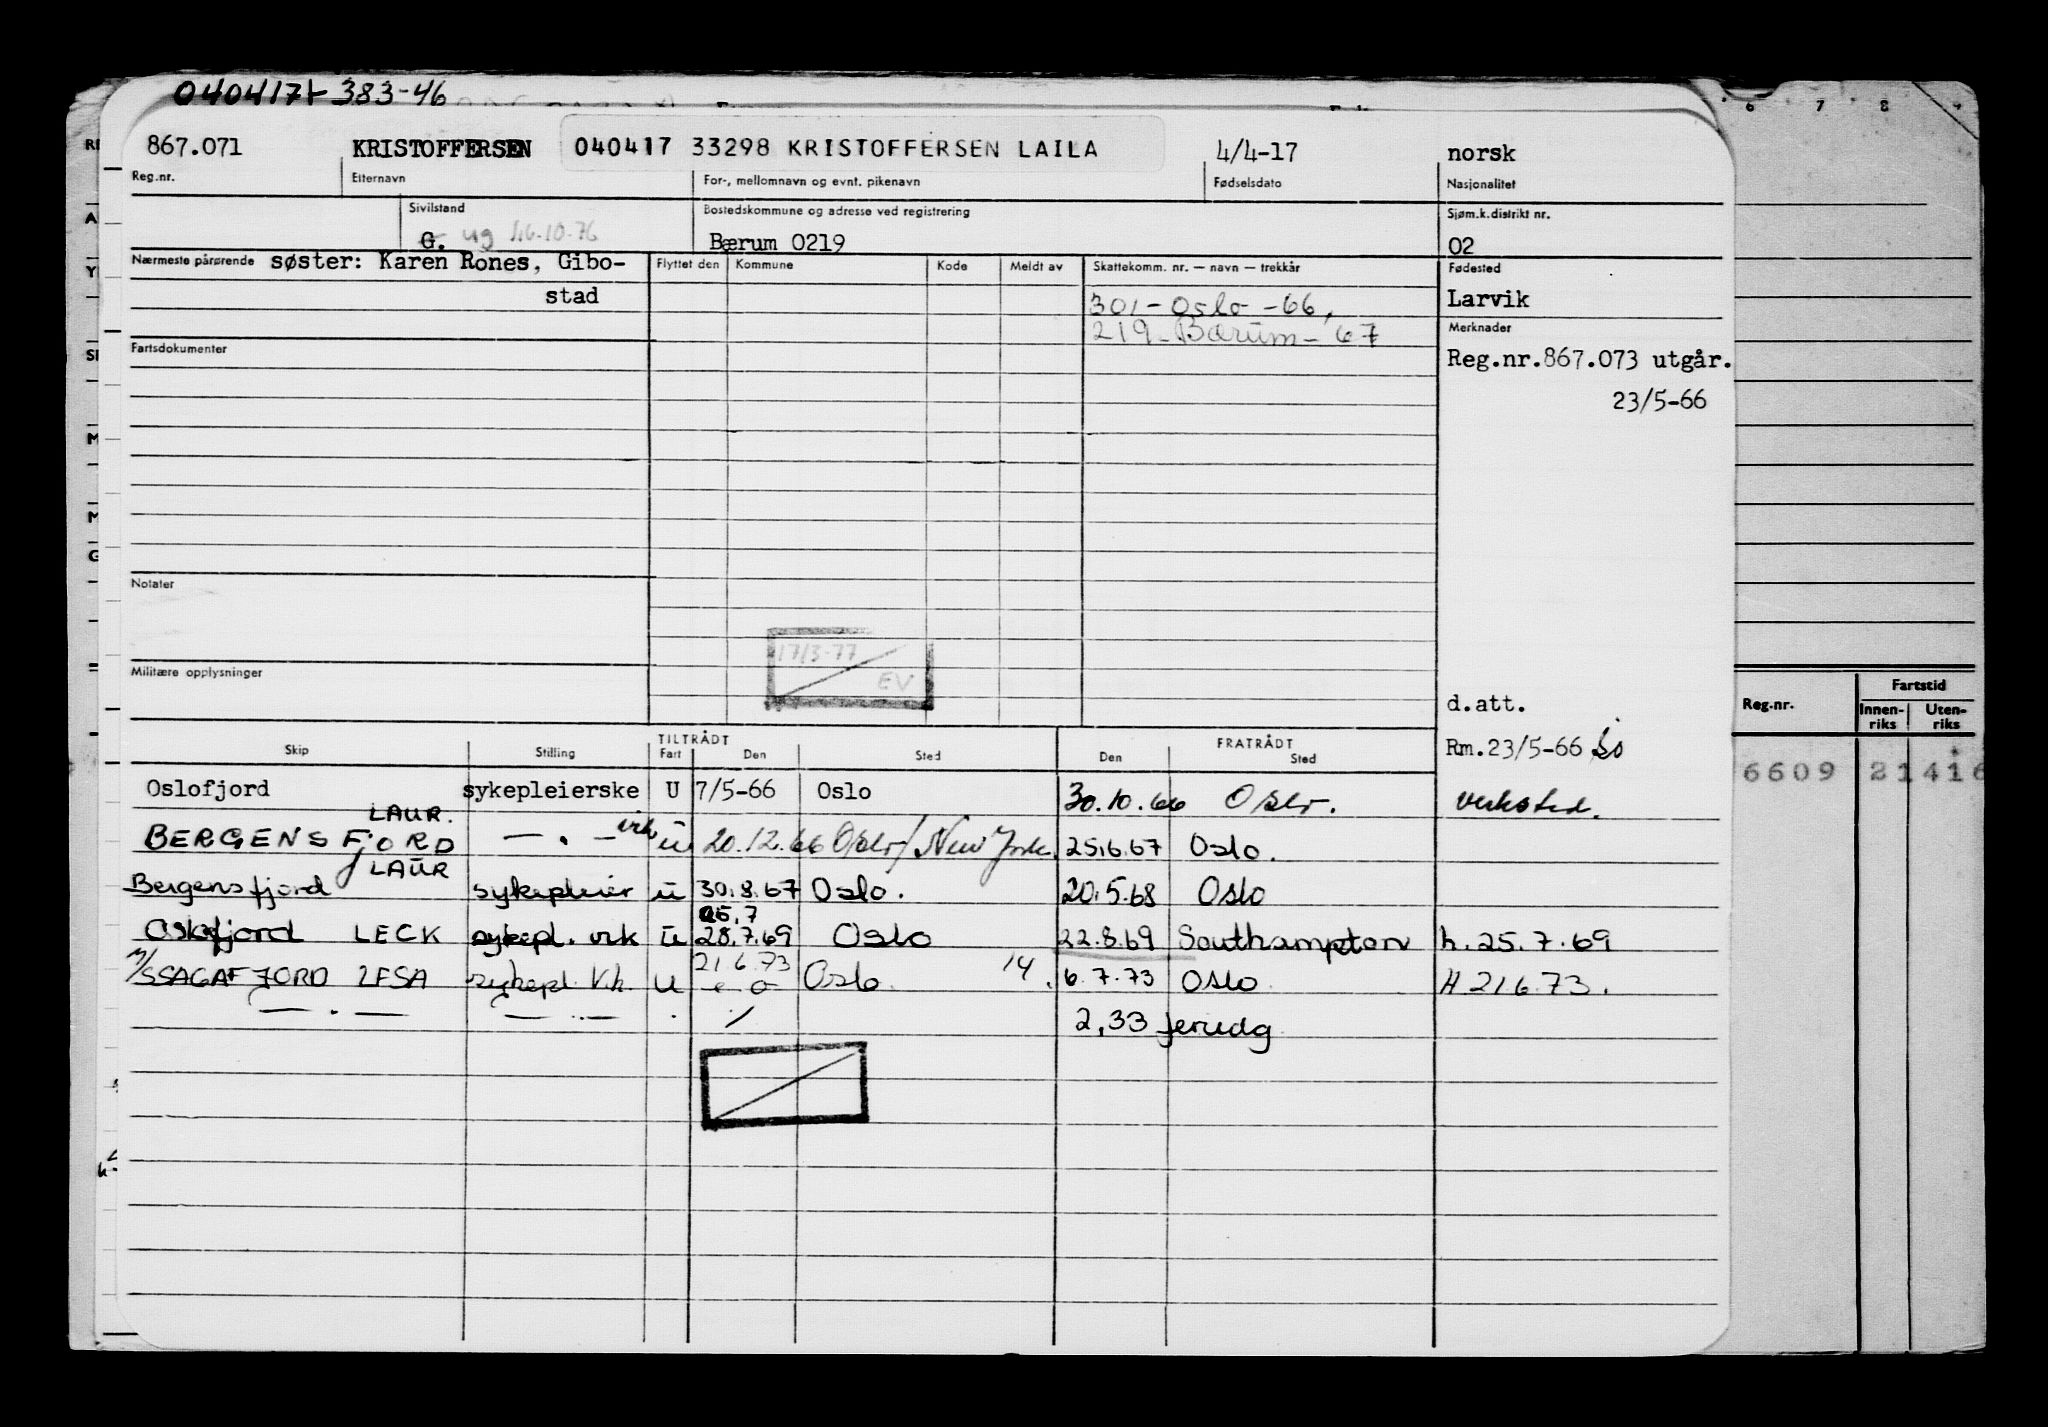 040417+ 383-46
6 7 8
867.071 KRISTOFFERSEN 040417 33298 KRISTOFFERSEN LAILA 4/4-17 norsk
Reg.nr. Etternavn For-, mellomnavn og evnt. pikenavn Fødselsdato Nasjonalitet
Sivilstand Bostedskommune og adresse ved registrering Sjøm.k.distrikt nr.
G. ug 16.10.76 Bærum 0219 02
Nærmeste pårørende søster: Karen Rones, Gibo- Flyttet den Kommune Kode Meldt av Skattekomm. nr. — navn — trekkår Fødested
stad 301 - Oslo - 66, Larvik
219 - Bærum - 67 Merknader
Fartsdokumenter Reg.nr.867.073 utgår.
23/5-66
Notater
17/3-77
EV
Militære opplysninger
d.att.
Reg.nr. Fartstid
Innen-riks Uten-riks
Skip Stilling TILTRÅDT Fart Den Sted FRATRÅDT Den Sted Rm.23/5-66
6609 21416
Oslofjord sykepleierske U 7/5-66 Oslo 30.10.66 Oslo. verksted.
LAUR.
BERGENSFJORD — . — vik u 20.12.66 Oslo/New York. 25.6.67 Oslo.
LAUR
Bergensfjord sykepleier u 30.8.67 Oslo. 20.5.68 Oslo
25.7
Oslofjord LECK sykepl. vik u 28.7.69 Oslo 22.8.69 Southampton h. 25.7.69
21.6.73
M/S SAGAFJORD LFSA sykepl. Vik. U Oslo 14. 6.7.73 Oslo H 21.6.73.
— . — — . — 2,33 feriedg